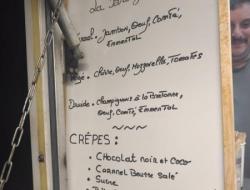 La
. Jambon, Oeuf, Comté,
Emmental
. Chèvre, Oeuf, Mozzarella, Tomates
. Champignons à la Bretonne,
Oeuf, Comté, Emmental
CRÊPES:
• Chocolat noir et Coco
• Caramel Beurre Salé
• Sucre